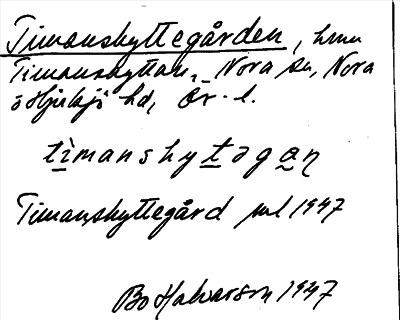 Timanshyttegården, hmn
Timanshyttan, Nora sn, Nora
o Hjulsjö hd, Ör. l.
tìmanshytəgaṇ
Timanshyttegård jul 1947
Bo Halvarson 1947